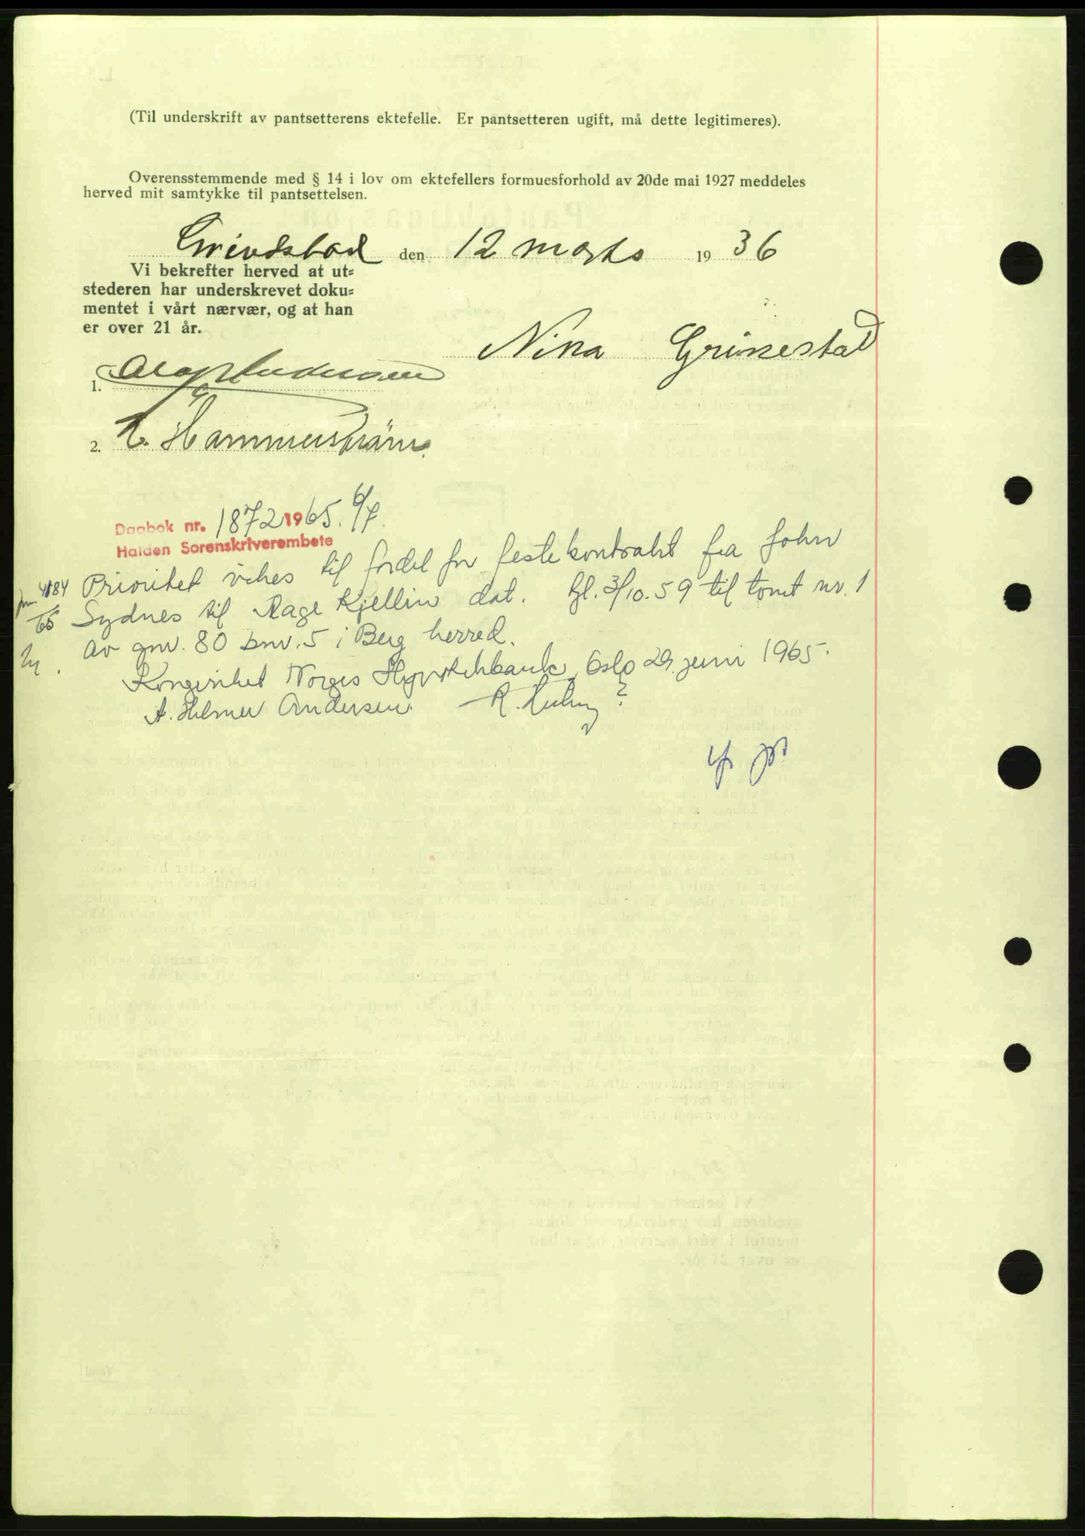 (Til underskrift av pantsetterens ektefelle. Er pantsetteren ugift, må dette legitimeres).
Overensstemmende med § 14 i lov om ektefellers formuesforhold av 20de mai 1927 meddeles
herved mit samtykke til pantsettelsen.
den 12 marts 1936
Vi bekrefter herved at ut=
stederen har underskrevet doku=
mentet i vårt nærvær, og at han
er over 21 år.
Nina Grimestad
1. Andersen
2. Hammerstrøm
Dagbok nr. 1872 1965. 6/7.
Halden Sorenskriverembete
Prioritet vikes til fordel for festekontrakt fra John
Sydnes til Aage Kjellin dat. tgl. 3/10.59 til tomt nr. 1
av gnr. 80 bnr. 5 i Berg herred.
Kongeriket Norges Hypotekbank, Oslo 29. juni 1965.
A. Hilmer Andersen. R. ?